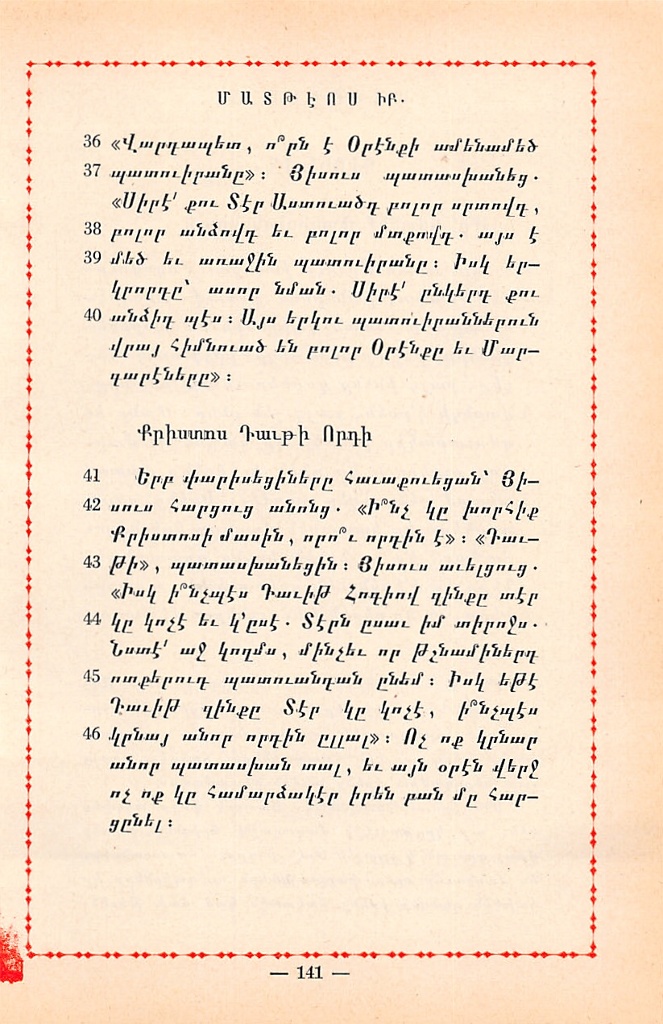 ՄԱՏԹԷՈՍ ԻԲ.
36 «Վարդապետ, ո՞րն է Օրէնքի ամենամեծ
37 պատուիրանը»։ Յիսուս պատասխանեց.
«Սիրէ՛ քու Տէր Աստուածդ բոլոր սրտովդ,
38 բոլոր անձովդ եւ բոլոր մտքովդ. այս է
39 մեծ եւ առաջին պատուիրանը։ Իսկ եր—
կրորդը՝ ասոր նման. Սիրէ՛ ընկերդ քու
40 անձիդ պէս։ Այս երկու պատուիրաններուն
վրայ հիմնուած են բոլոր Օրէնքը եւ Մար—
գարէները»։
Քրիստոս Դաւթի Որդի
41 Երբ փարիսեցիները հաւաքուեցան՝ Յի—
42 սուս հարցուց անոնց. «Ի՞նչ կը խորհիք
Քրիստոսի մասին, որո՞ւ որդին է»։ «Դաւ—
43 Թի», պատասխանեցին։ Յիսուս աւելցուց.
«Իսկ ի՞նչպէս Դաւիթ Հոգիով զինքը տէր
44 կը կոչէ եւ կ՚ըսէ. Տէրն ըսաւ իմ տիրոջս.
Նստէ՛ աջ կողմս, մինչեւ որ թշնամիներդ
45 ոտքերուդ պատուանդան ընեմ։ Իսկ եթէ
Դաւիթ զինքը Տէր կը կոչէ, ի՞նչպէս
46 կրնայ անոր որդին ըլլալ»։ Ոչ ոք կրնար
անոր պատասխան տալ, եւ այն օրէն վերջ
ոչ ոք կը համարձակէր իրեն բան մը հար—
ցընել։
— 141 —